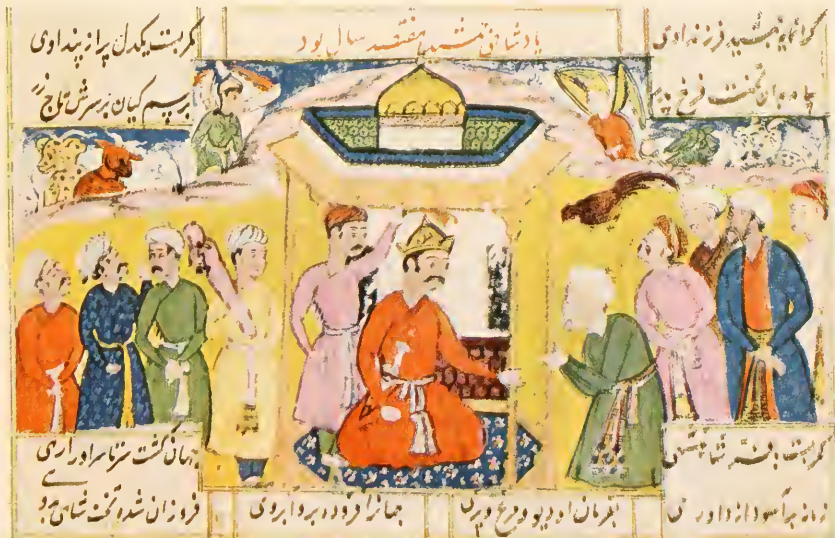 گرانمایه جمشید فرزند اوی
پادشاهی جمشید هفتصد سال بود
کمر بست یکدل پر از پند اوی
بران تخت فرخ پدر
برسم کیان بر سرش تاج زر
کمر بست با فر شاهنشهی
جهان گشت سرتاسر او را رهی
زمانه برآسود از داوری
بفرمان او دیو و مرغ و پری
جهانرا فزوده بدو آبروی
فروزان شده تخت شاهی بدوی